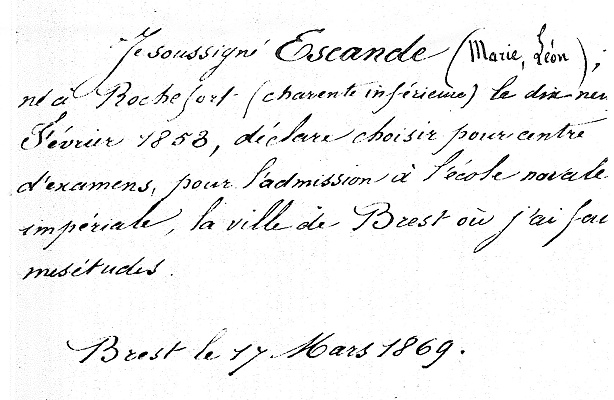 Je soussigné Escande (Marie, Léon),
né à Rochefort (charente inférieure) le dix neu
Février 1853, déclare choisir pour centre
d'examens, pour l'admission à l'école navale
impériale, la ville de Brest où j'ai fai
mes études.
Brest le 17 Mars 1869.